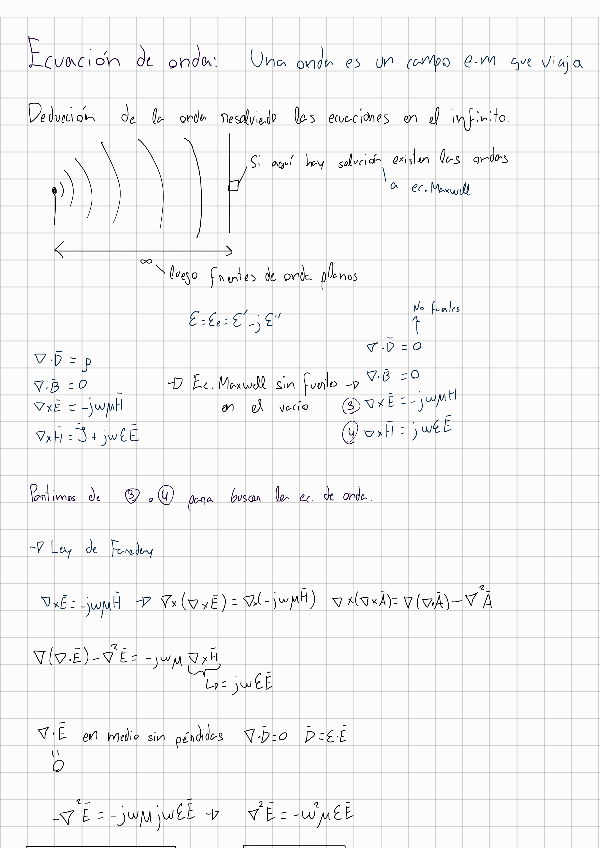 Ecuación de onda: Una onda es un campo e.m que viaja
Deducción de la onda resolviendo las ecuaciones en el infinito.
Si aquí hay solución existen las ondas
a ec. Maxwell
∞
luego frentes de onda planos
ε = εe = ε' - jε''
No fuentes
∇·D̄ = ρ
∇·B̄ = 0
∇×Ē = -jωμH̄
∇×H̄ = J̄ + jωεĒ
→ Ec. Maxwell sin fuentes →
en el vacio
∇·D̄ = 0
∇·B̄ = 0
③ ∇×Ē = -jωμH̄
④ ∇×H̄ = jωεĒ
Partimos de ③ o ④ para buscar la ec. de onda.
→ Ley de Faraday
∇×Ē = -jωμH̄ → ∇×(∇×Ē) = ∇×(-jωμH̄) ∇×(∇×Ā) = ∇(∇·Ā) - ∇²Ā
∇(∇·Ē) - ∇²Ē = -jωμ ∇×H̄
↳ = jωεĒ
∇·Ē en medio sin pérdidas ∇·D̄ = 0 D̄ = ε·Ē
=
0
-∇²Ē = -jωμjωεĒ → ∇²Ē = -ω²μεĒ